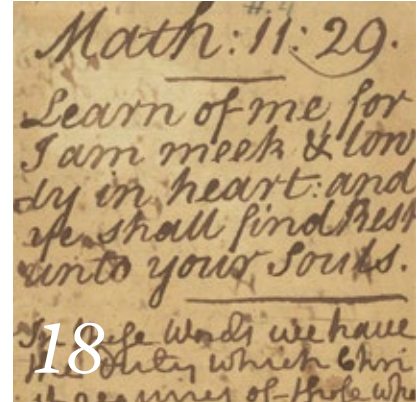 Math: 11: 29.
Learn of me for
I am meek & low
ly in heart: and
ye shall find Rest
unto your Souls.
In these Words we have
the Duty which Chri
requires of those who
18